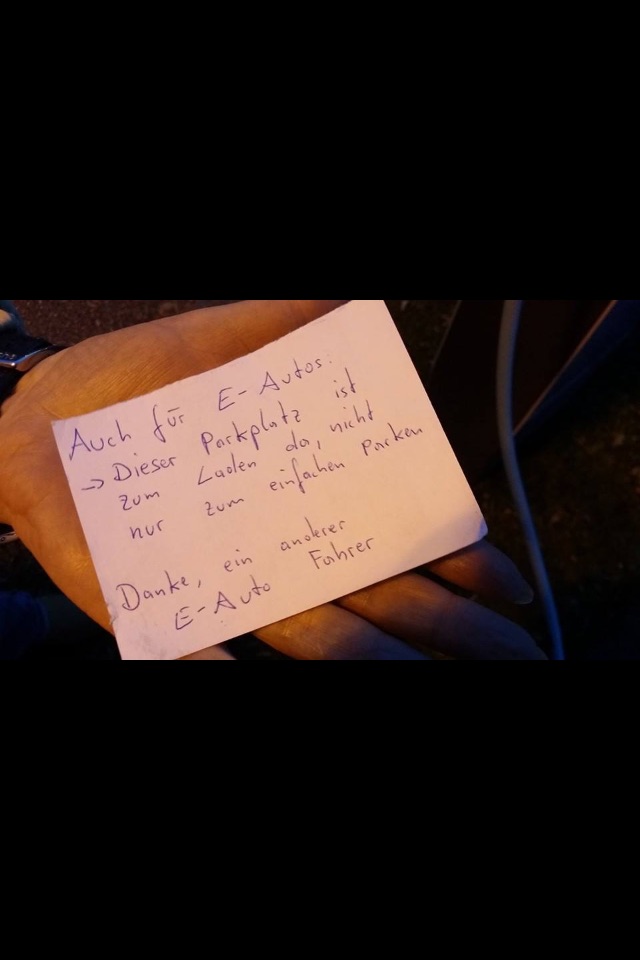 Auch für E-Autos:
-> Dieser Parkplatz ist
zum Laden da, nicht
nur zum einfachen Parken
Danke, ein anderer
E-Auto Fahrer